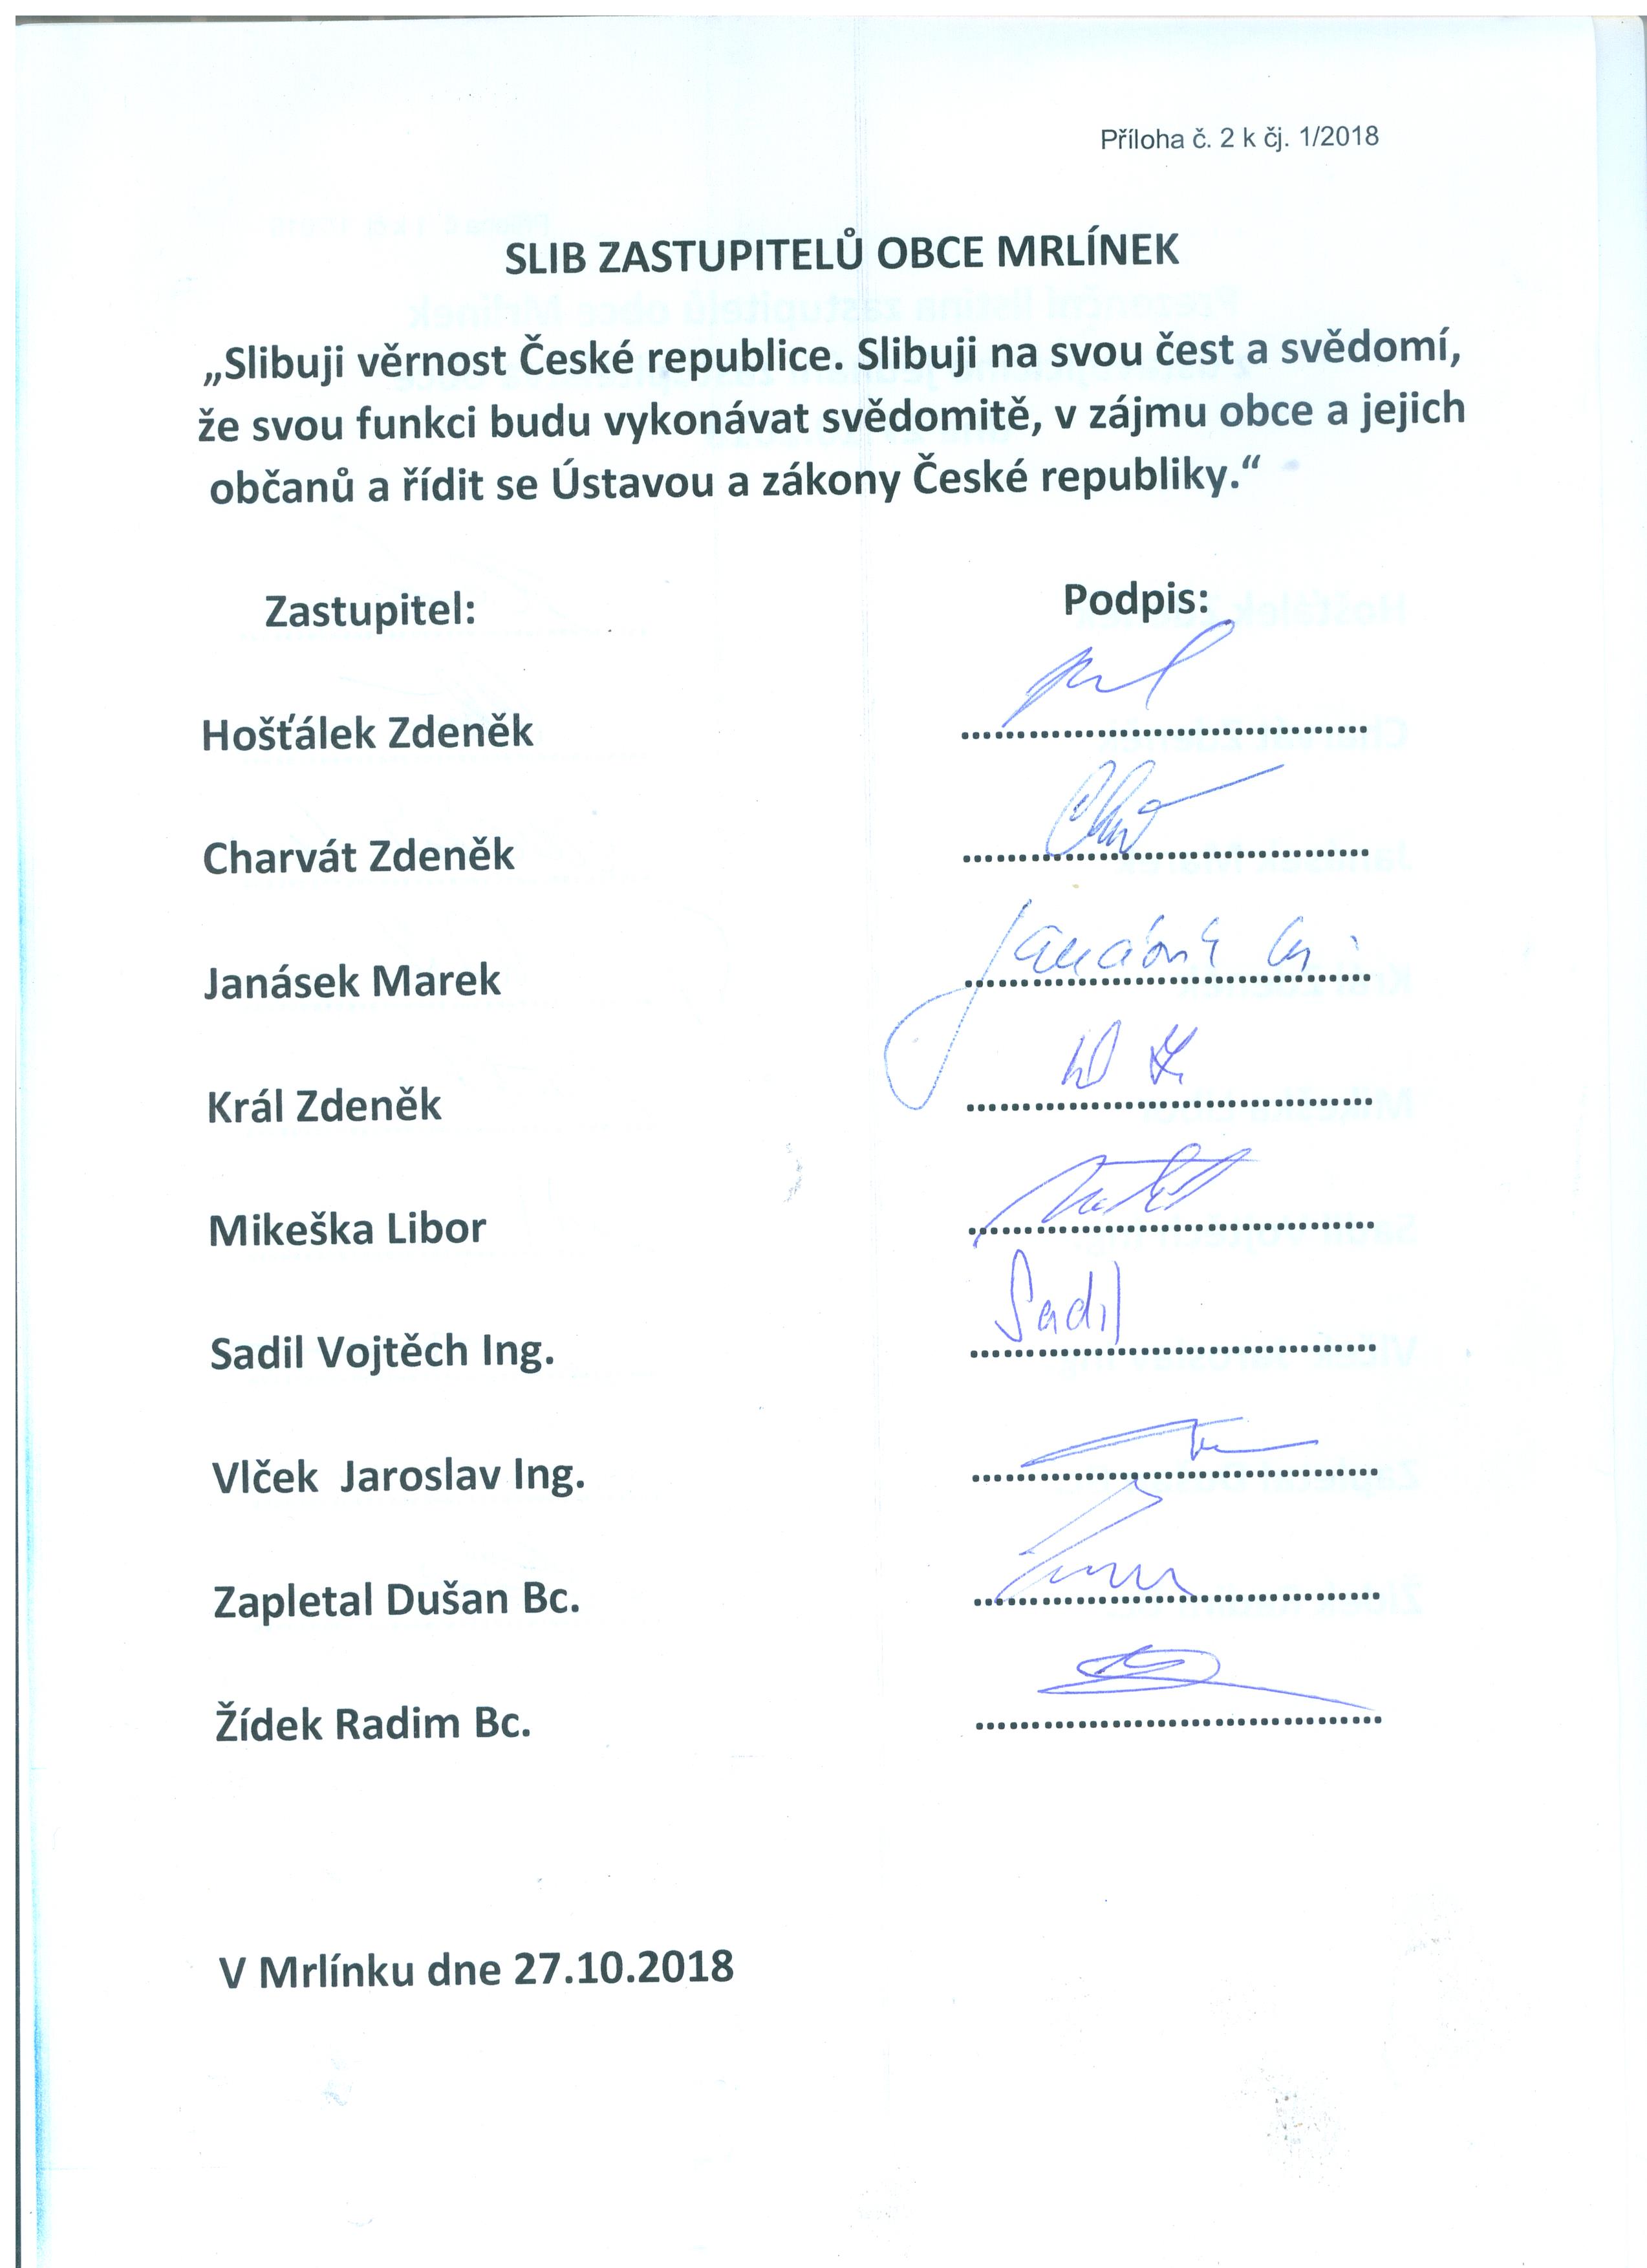 Příloha č. 2 k čj. 1/2018
SLIB ZASTUPITELŮ OBCE MRLÍNEK
„Slibuji věrnost České republice. Slibuji na svou čest a svědomí,
že svou funkci budu vykonávat svědomitě, v zájmu obce a jejich
občanů a řídit se Ústavou a zákony České republiky.“
Zastupitel: Podpis:
Hošťálek Zdeněk ....................................
Charvát Zdeněk ....................................
Janásek Marek ....................................
Král Zdeněk ....................................
Mikeška Libor ....................................
Sadil
Sadil Vojtěch Ing. ....................................
Vlček Jaroslav Ing. ....................................
Zapletal Dušan Bc. ....................................
Žídek Radim Bc. ....................................
V Mrlínku dne 27.10.2018